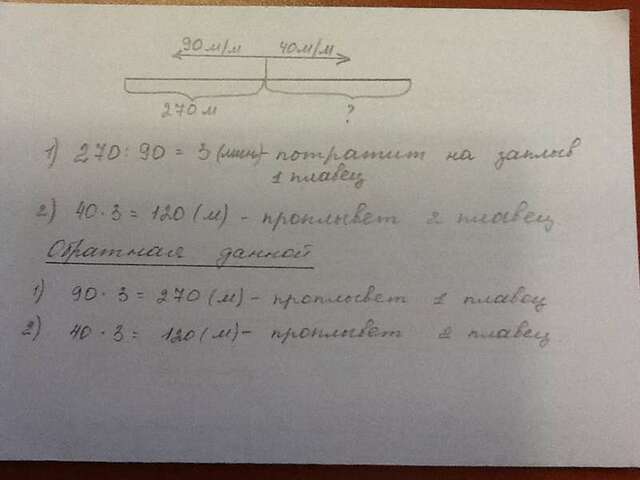 90 м/м 40 м/м
270 м ?
1) 270 : 90 = 3 (мин) - потратит на заплыв
1 плавец
2) 40 · 3 = 120 (м) - проплывет 2 плавец
Обратная данной
1) 90 · 3 = 270 (м) - проплывет 1 плавец
2) 40 · 3 = 120 (м) - проплывет 2 плавец